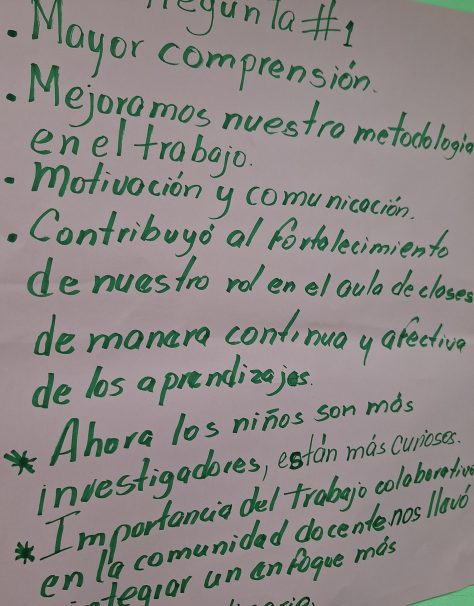 Pregunta #1
. Mayor comprensión.
. Mejoramos nuestra metodología
en el trabajo.
. Motivación y comunicación.
. Contribuyó al fortalecimiento
de nuestro rol en el aula de clases
de manera continua y afectiva
de los aprendizajes.
* Ahora los niños son más
investigadores, están más curiosos.
* Importancia del trabajo colaborativo
en la comunidad docente. nos llevó
integrar un enfoque más